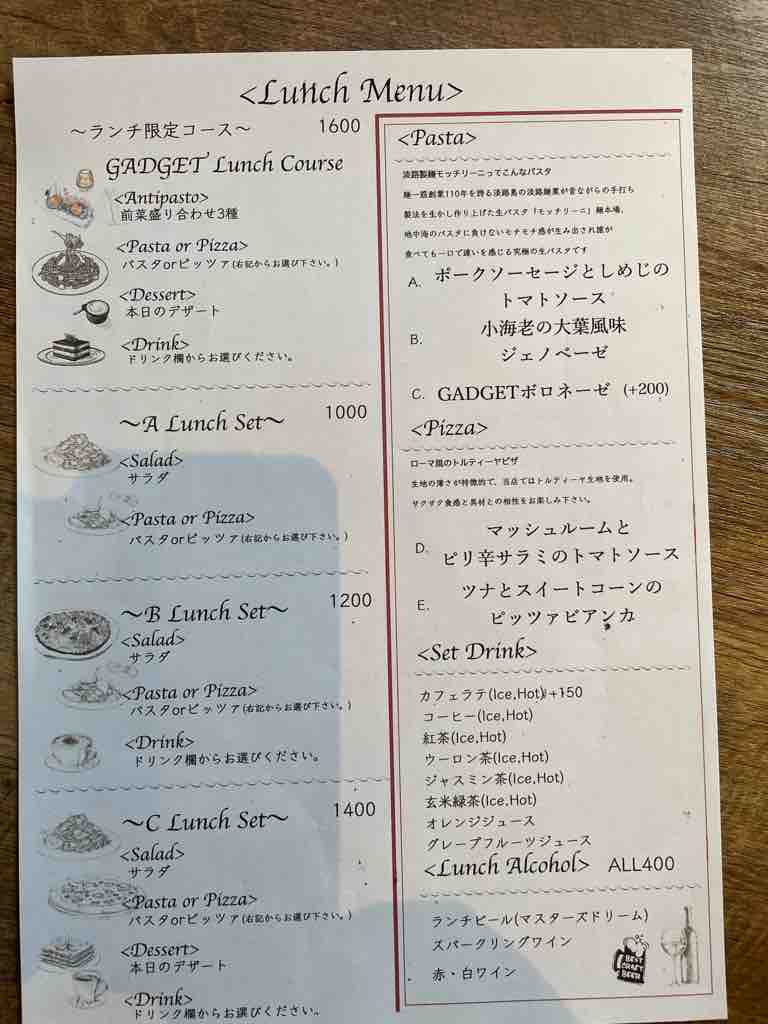 <Lunch Menu>
～ランチ限定コース～ 1600
GADGET Lunch Course
<Antipasto>
前菜盛り合わせ3種
<Pasta or Pizza>
パスタorピッツァ(右記からお選び下さい。)
<Dessert>
本日のデザート
<Drink>
ドリンク欄からお選びください。
～A Lunch Set～ 1000
<Salad>
サラダ
<Pasta or Pizza>
パスタorピッツァ(右記からお選び下さい。)
～B Lunch Set～ 1200
<Salad>
サラダ
<Pasta or Pizza>
パスタorピッツァ(右記からお選び下さい。)
<Drink>
ドリンク欄からお選びください。
～C Lunch Set～ 1400
<Salad>
サラダ
<Pasta or Pizza>
パスタorピッツァ(右記からお選び下さい。)
<Dessert>
本日のデザート
<Drink>
ドリンク欄からお選びください。
<Pasta>
淡路製麺モッチリーニってこんなパスタ
麺一筋創業110年を誇る淡路島の淡路麺業が昔ながらの手打ち
製法を生かし作り上げた生パスタ「モッチリーニ」麺本場、
地中海のパスタに負けないモチモチ感が生み出され誰が
食べても一口で違いを感じる究極の生パスタです
A. ポークソーセージとしめじの
トマトソース
B. 小海老の大葉風味
ジェノベーゼ
C. GADGETボロネーゼ (+200)
<Pizza>
ローマ風のトルティーヤピザ
生地の薄さが特徴的で、当店ではトルティーヤ生地を使用。
サクサク食感と具材との相性をお楽しみ下さい。
D. マッシュルームと
ピリ辛サラミのトマトソース
E. ツナとスイートコーンの
ピッツァビアンカ
<Set Drink>
カフェラテ(Ice,Hot)/+150
コーヒー(Ice,Hot)
紅茶(Ice,Hot)
ウーロン茶(Ice,Hot)
ジャスミン茶(Ice,Hot)
玄米緑茶(Ice,Hot)
オレンジジュース
グレープフルーツジュース
<Lunch Alcohol> ALL400
ランチビール(マスターズドリーム)
スパークリングワイン
赤・白ワイン
BEST
CRAFT
BEER